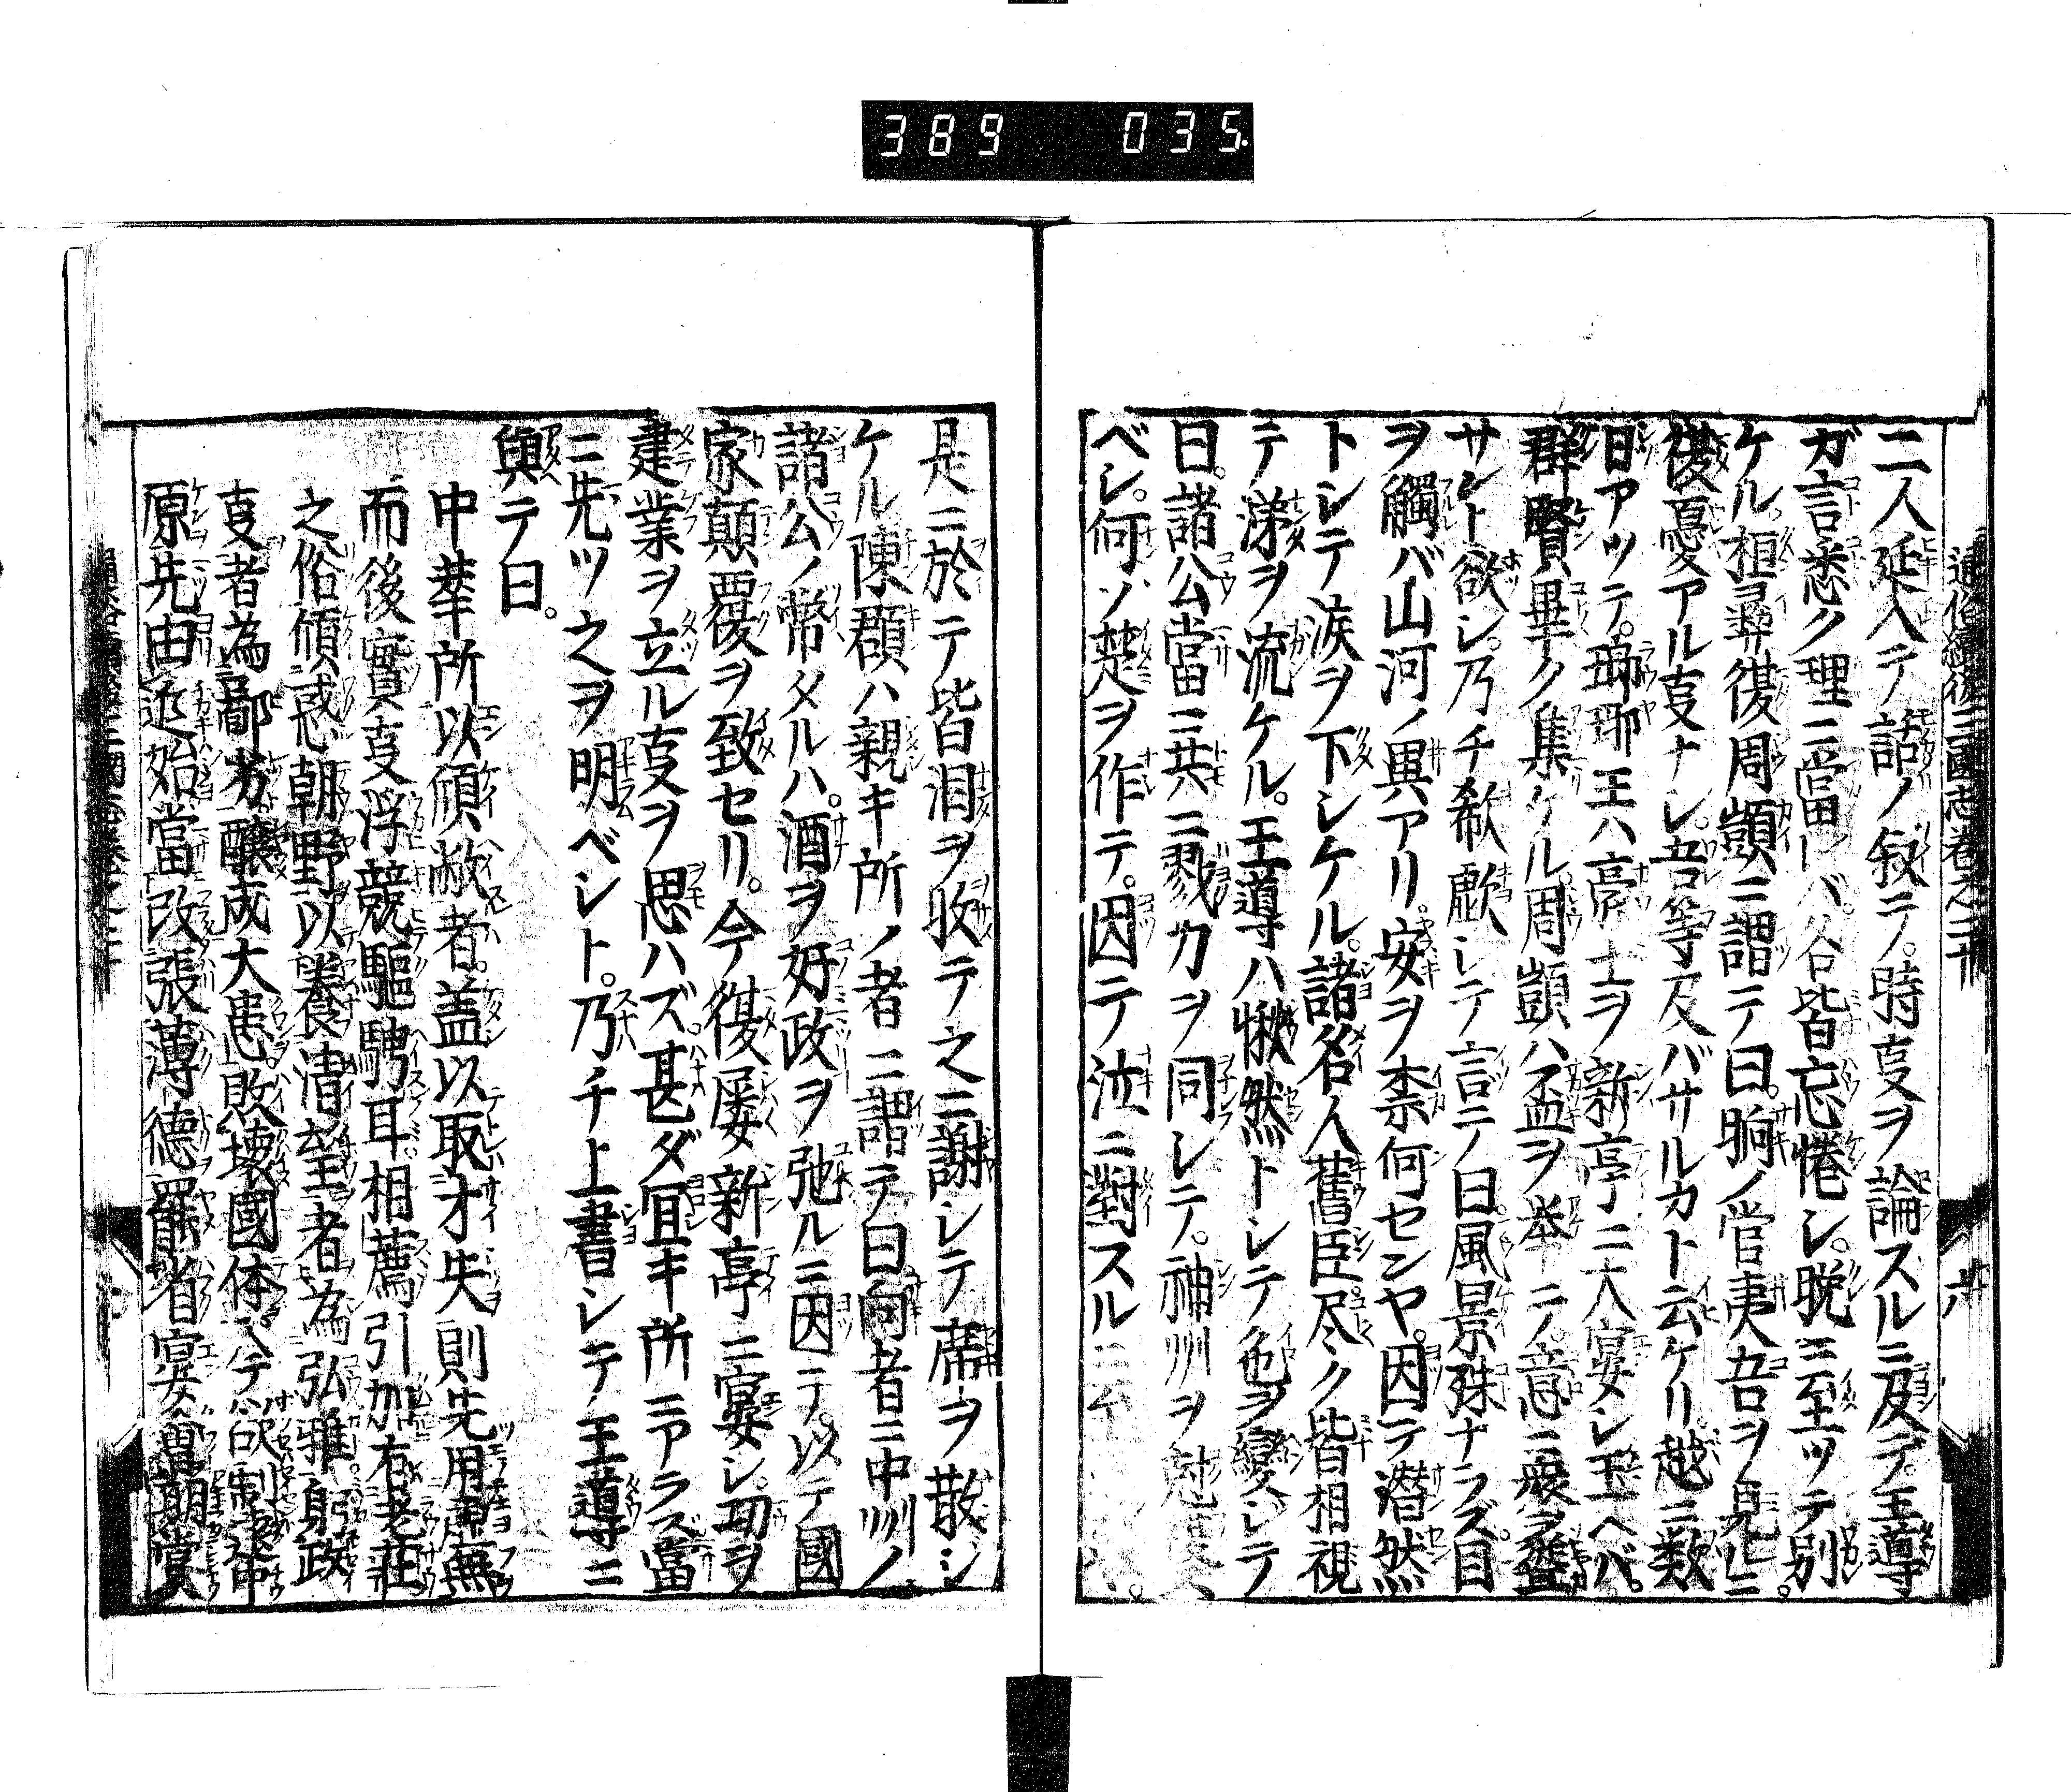 389 035
通俗續後三國志卷之二十
二人延入テ話ノ敍テ。時叓ヲ論スルニ及テ。王導
ガ言悉ク理ニ當レバ。各皆忘惓シ。晩ニ至ツテ別
ケル。桓彝復周顗ニ謂テ曰。晌ノ管夷吾ヲ見ルニ。
復憂アル叓ナシ。吾等及バサルカト云ケリ。越ニ数
日アツテ。瑯琊王ハ亭士ヲ新亭ニ大宴シ玉ヘバ。
群賢畢ク集ケル周顗ハ盃ヲ举テ。意ニ
サレト欲シ。乃チ欷歔シテ言テノ曰風景殊ナラズ目
ヲ觸バ山河ノ異アリ。安ヲ柰何センヤ。因テ潜然
トレテ涙ヲ下シケル。諸名人舊臣尽ク皆相視
テ涕ヲ流ケル。王導ハ愀然トレテ色ヲ變レテ
曰。諸公當ニ共ニ戮力ヲ同レテ。神州ヲ
ベレ。何ノ楚ヲ作テ。因テ泣ニ對スル
是ニ於テ皆泪ヲ收テ之ニ謝レテ席ヲ散シ
ケル陳頵ハ親キ所ノ者ニ謂テ曰向者ニ中州ノ
諸公ノ幣タルハ。酒ヲ好政ヲ弛ルニ因テ。以テ國
家顛覆ヲ致セリ。今復屡新亭ニ宴シ。功ヲ
建業ヲ立ル叓ヲ思ハズ甚ダ宜キ所ニアラズ當
ニ先ツ之ヲ明ベレト。乃チ上書レテ王導ニ
與テ曰。
中華所以傾敝者。盖以取才失則先用虛無
而後實叓浮競驅騁耳。相薦引加右老莊
之俗傾惑朝野以養清至者為弘雅。躬政
叓者為鄙劣釀成大患敗壞國体今欲制
原先由近始當改張薄德罷省宴會期賞